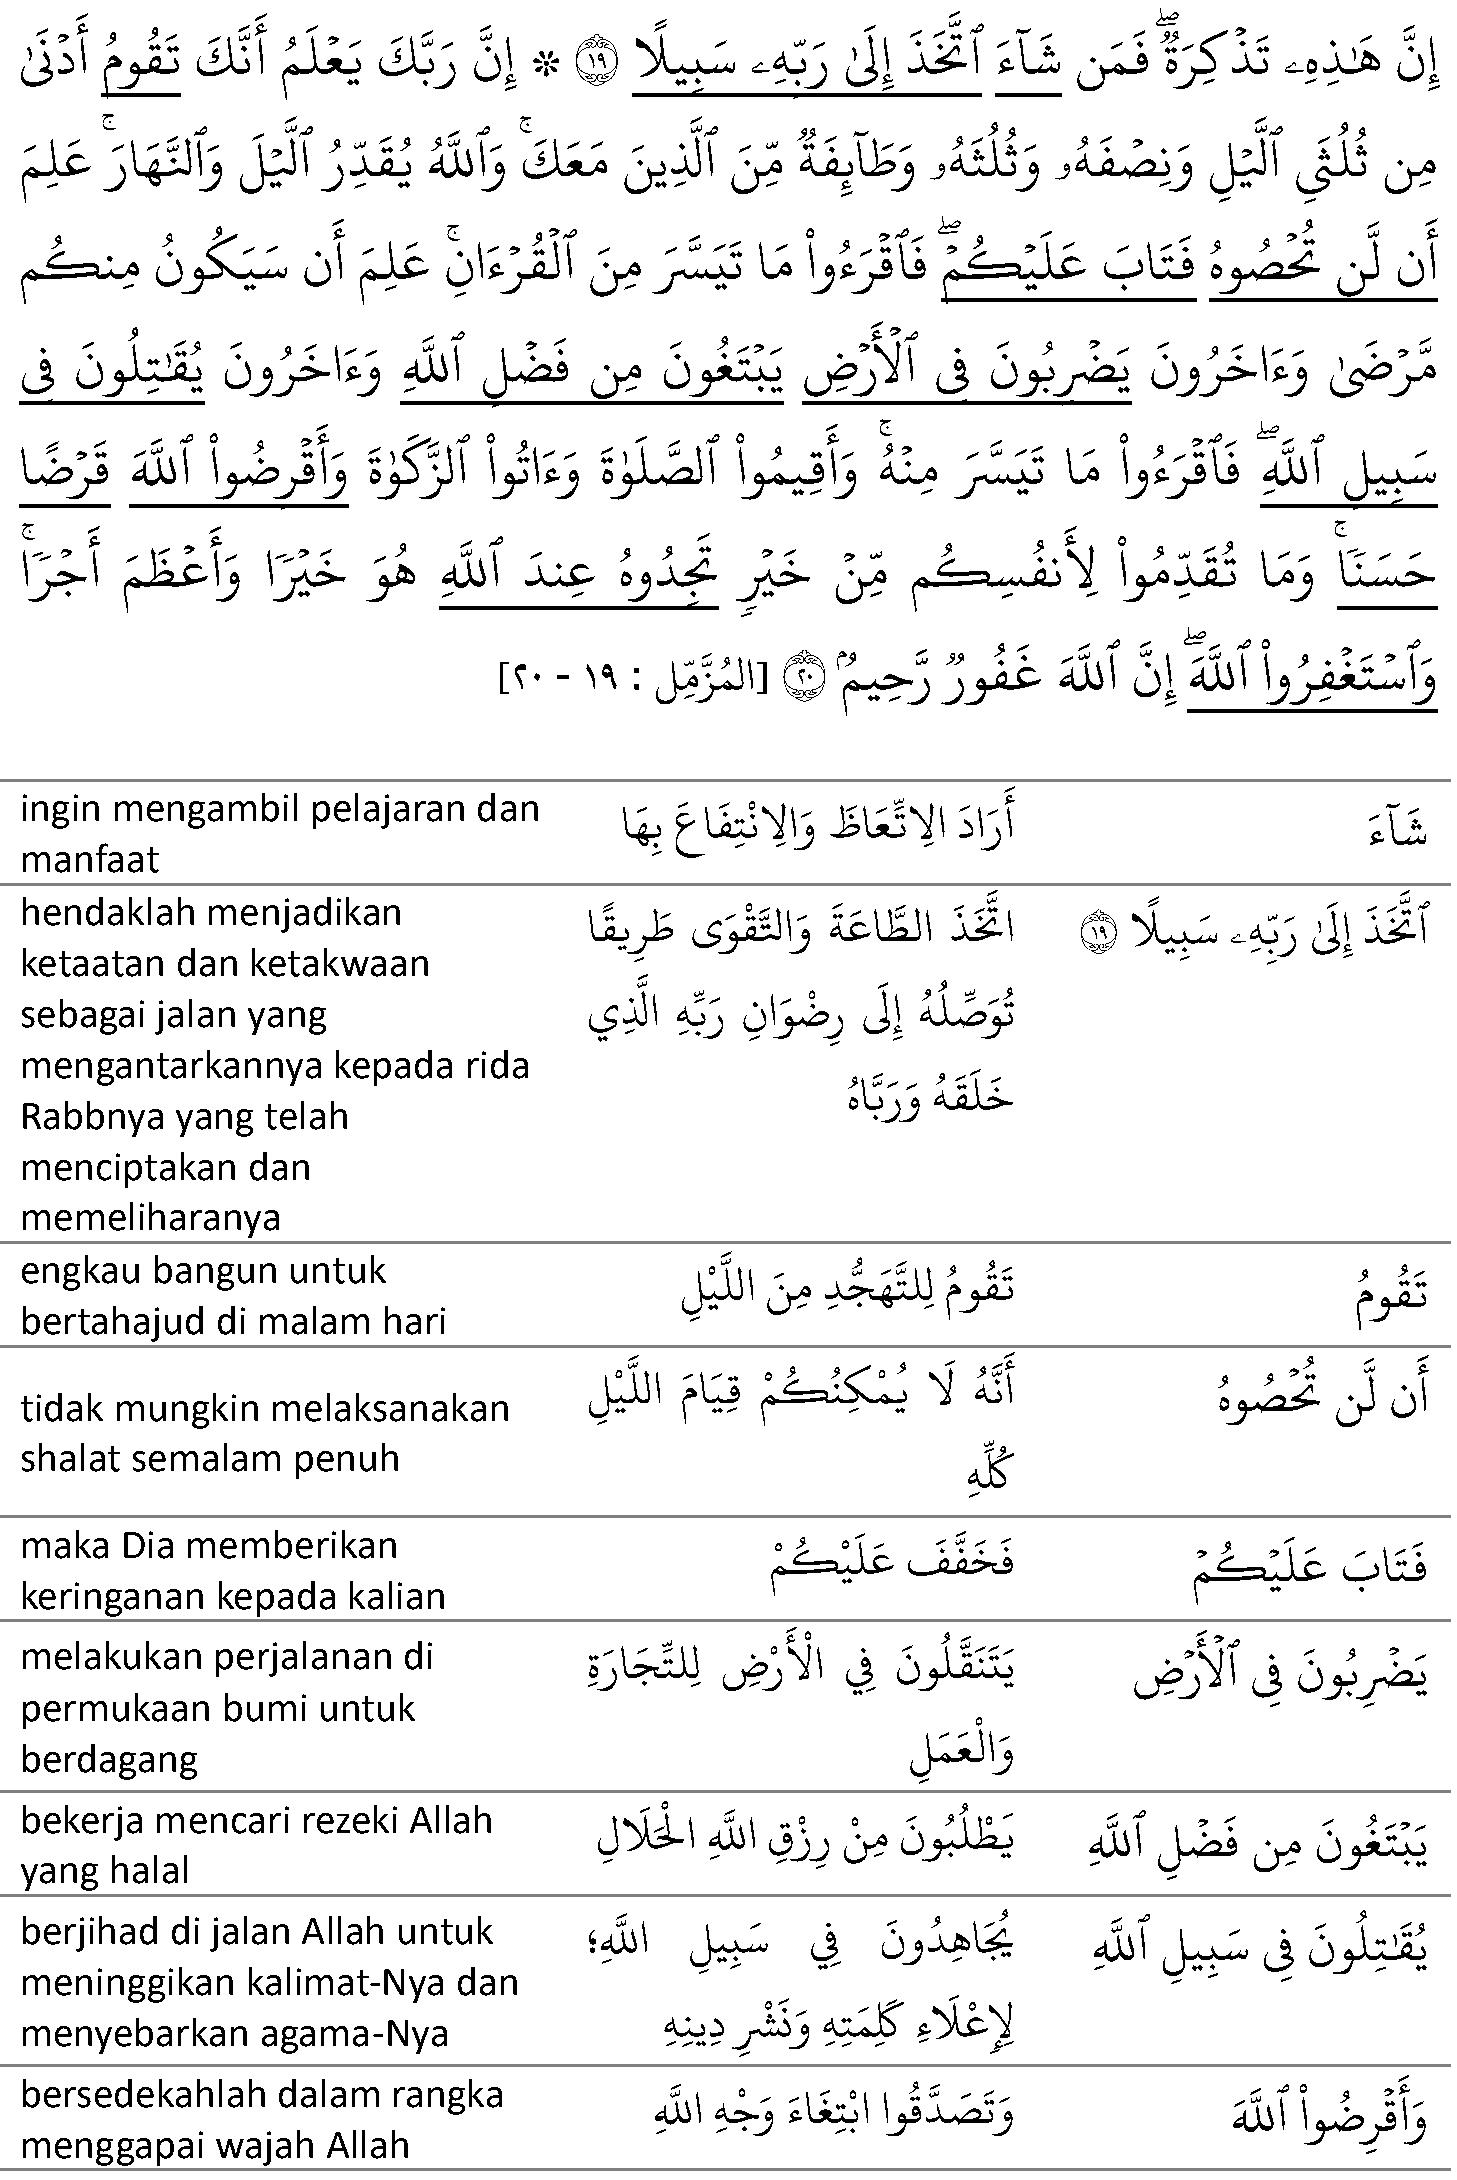 إِنَّ هَٰذِهِۦ تَذۡكِرَةٞۖ فَمَن شَآءَ ٱتَّخَذَ إِلَىٰ رَبِّهِۦ سَبِيلًا ١٩ ۞ إِنَّ رَبَّكَ يَعۡلَمُ أَنَّكَ تَقُومُ أَدۡنَىٰ
مِن ثُلُثَيِ ٱلَّيۡلِ وَنِصۡفَهُۥ وَثُلُثَهُۥ وَطَآئِفَةٞ مِّنَ ٱلَّذِينَ مَعَكَۚ وَٱللَّهُ يُقَدِّرُ ٱلَّيۡلَ وَٱلنَّهَارَۚ عَلِمَ
أَن لَّن تُحۡصُوهُ فَتَابَ عَلَيۡكُمۡۖ فَٱقۡرَءُواْ مَا تَيَسَّرَ مِنَ ٱلۡقُرۡءَانِۚ عَلِمَ أَن سَيَكُونُ مِنكُم
مَّرۡضَىٰ وَءَاخَرُونَ يَضۡرِبُونَ فِي ٱلۡأَرۡضِ يَبۡتَغُونَ مِن فَضۡلِ ٱللَّهِ وَءَاخَرُونَ يُقَٰتِلُونَ فِي
سَبِيلِ ٱللَّهِۖ فَٱقۡرَءُواْ مَا تَيَسَّرَ مِنۡهُۚ وَأَقِيمُواْ ٱلصَّلَوٰةَ وَءَاتُواْ ٱلزَّكَوٰةَ وَأَقۡرِضُواْ ٱللَّهَ قَرۡضًا
حَسَنٗاۚ وَمَا تُقَدِّمُواْ لِأَنفُسِكُم مِّنۡ خَيۡرٖ تَجِدُوهُ عِندَ ٱللَّهِ هُوَ خَيۡرٗا وَأَعۡظَمَ أَجۡرٗاۚ
وَٱسۡتَغۡفِرُواْ ٱللَّهَۖ إِنَّ ٱللَّهَ غَفُورٞ رَّحِيمُۢ ٢٠ [المُزَّمِّل : ١٩ - ٢٠]
شَآءَ
أَرَادَ الِاتِّعَاظَ وَالِانْتِفَاعَ بِهَا
ingin mengambil pelajaran dan
manfaat
ٱتَّخَذَ إِلَىٰ رَبِّهِۦ سَبِيلًا ١٩
اتَّخَذَ الطَّاعَةَ وَالتَّقْوَى طَرِيقًا
تُوَصِّلُهُ إِلَى رِضْوَانِ رَبِّهِ الَّذِي
خَلَقَهُ وَرَبَّاهُ
hendaklah menjadikan
ketaatan dan ketakwaan
sebagai jalan yang
mengantarkannya kepada rida
Rabbnya yang telah
menciptakan dan
memeliharanya
تَقُومُ
تَقُومُ لِلتَّهَجُّدِ مِنَ اللَّيْلِ
engkau bangun untuk
bertahajud di malam hari
أَن لَّن تُحۡصُوهُ
أَنَّهُ لَا يُمْكِنُكُمْ قِيَامَ اللَّيْلِ
كُلِّهِ
tidak mungkin melaksanakan
shalat semalam penuh
فَتَابَ عَلَيۡكُمۡ
فَخَفَّفَ عَلَيْكُمْ
maka Dia memberikan
keringanan kepada kalian
يَضۡرِبُونَ فِي ٱلۡأَرۡضِ
يَتَنَقَّلُونَ فِي الْأَرْضِ لِلتِّجَارَةِ
وَالْعَمَلِ
melakukan perjalanan di
permukaan bumi untuk
berdagang
يَبۡتَغُونَ مِن فَضۡلِ ٱللَّهِ
يَطْلُبُونَ مِنْ رِزْقِ اللَّهِ الْحَلَالِ
bekerja mencari rezeki Allah
yang halal
يُقَٰتِلُونَ فِي سَبِيلِ ٱللَّهِ
يُجَاهِدُونَ فِي سَبِيلِ اللَّهِ؛
لِإِعْلَاءِ كَلِمَتِهِ وَنَشْرِ دِينِهِ
berjihad di jalan Allah untuk
meninggikan kalimat-Nya dan
menyebarkan agama-Nya
وَأَقۡرِضُواْ ٱللَّهَ
وَتَصَدَّقُوا ابْتِغَاءَ وَجْهِ اللَّهِ
bersedekahlah dalam rangka
menggapai wajah Allah